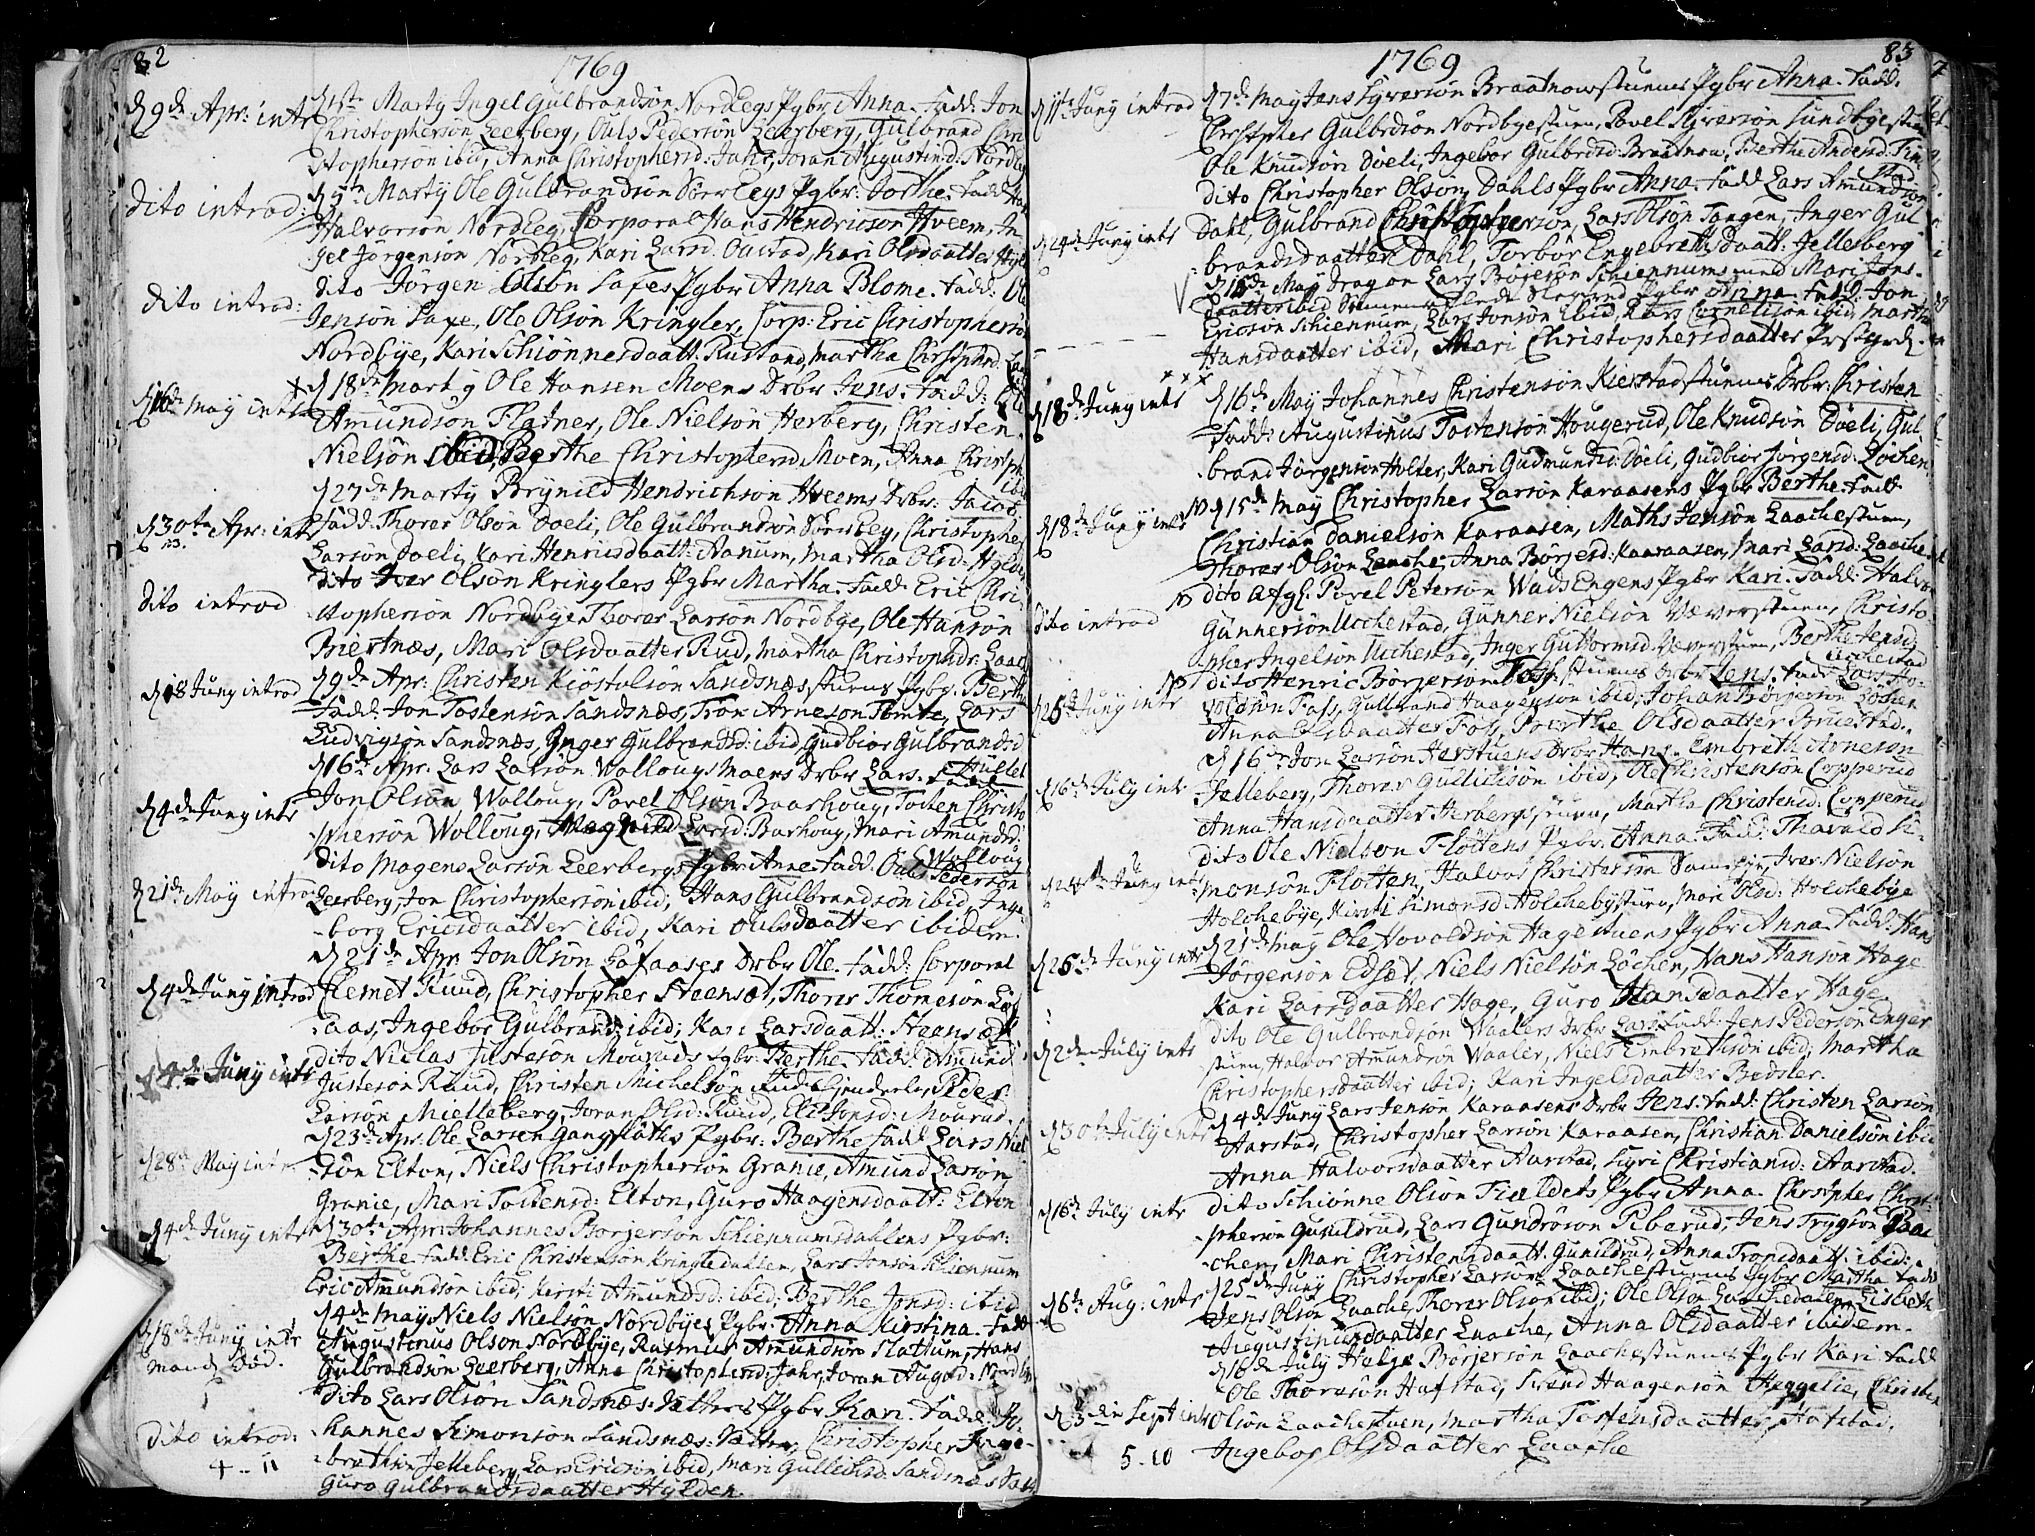 82
1769
d 9de Apr: intr
d 1ste Martij Ingel Gulbrandsön Nordlegs Pgbr Anna. fadd: Jon
Christophersön Leerberg, Ouls Pedersön Leerberg, Gulbrand Chri
stophersön ibid, Anna Christophersd: Jahr, Joran Augustind: Nordleg
Dito introd:
d 5te Martij Ole Gulbrandsön Sörlegs Pgbr: Dorthe. fadd:
Halvorsön Nordleg, Corporal Hans Hendricsön Hveem, In
gel Jörgensön Nordleg, Kari Larsd Oustad, Kari Olsdaatter
Dito introd:
dito Jörgen Olsön Saxes Pgbr Anna Blome. fadd: Ole
Jensön Saxe, Ole Olsön Kringler, Corp: Eric Christophersön
Nordbye, Kari Schiönnesdaatt: Rustand, Martha Chrstphrd:
d 16de May intr
d 18de Martij Ole Hansen Moens Drbr Jens. fadd:
Amundsön Flatner, Ole Nielsön Herberg, Christen
Nielsön ibid, Berthe Christophersd Moen, Anna Christph
ibid
d 30te Apr: intr
d 27de Martij Brynild Hendrichsön Hveems Drbr: Jacob.
fadd: Thorer Olsön Döeli, Ole Gulbrandsön Sörleg, Christopher
Larsön Döeli, Kari Henricsdaatt: Aanum, Martha Olsd:
Dito introd
dito Iver Olsön Kringlers Pgbr Martha. fadd: Eric Chri
stophersön Nordbye Thorer Larsön Nordbye, Ole Hansön
Briertnæs, Mari Olsdaatter Rud, Martha Christophdr:
d 18 Junij introd
d 9de Apr: Christen Kiöstolsön Sandsnæs stuens Pgbr: Berthe
fadd: Jon Tostensön Sandsnæs, Tron Arnesön Tomte, Lars
Ludvigsön Sandsnæs, Inger Gulbrandsd: ibid, Gudbior Gulbrandsd
d 4de Junij intr
d 16de Apr. Lars Larsön Wollougs Moens Drbr Lars.
Jon Olsön Woloug, Povel Olsön Baarhoug, Tosten Christo
phersön Wolloug, Magnild Larsd: Barhoug, Mari Amundsd
Wolloug
d 21de May introd
dito Mogens Larsön Leerbergs Pgbr: Anne fadd. Ouls Pedersön
Leerberg, Jon Christophersön ibid, Hans Gulbrandsön ibid, Inge
borg Ericsdaatter ibid, Kari Oulsdaatter ibidem.
d 4de Junij introd
d 21de Apr Jon Olsön Löfaases Drbr Ole. fadd: Corporal
Clemet Ruud, Christopher Steensæt, Thorer Thomesön
aas, Ingebor Gulbrand: ibid; Kari Larsdaatt: Steensæt
d 4de Junij intr
dito Niclas Justesön Mouruds Pgbr: Berthe. fadd: Amund
Justesön Ruud, Christen Michelsön Peder
Larsön Mielleberg, Joran Olsd: Ruud, Jonsd: Mourud.
d 28de May intr
d 23de Apr. Ole Larsen Gangflöths Pgbr: Berthe fadd. Lars Niel
sön Elton, Niels Christophersön Granie, Amund Larsön
Granie, Mari Tostensd: Elton, Guro Haagensdaatt: Elton
d 4de Junij intr
d 30te Apr: Johannes Börjersön Schiennumsdahlens Pgbr:
Berthe fadd: Eric Christensön Kringledallen, Lars Jonsön Schiennum
Eric Amundsön ibid, Kirsti Amundsd: ibid; Berthe Jonsd: ibid
d 18de Junij intr
mand Död.
d 4de May Niels Nielsön Nordbyes Pgbr: Anna Kirstina. fadd
Augustinus Olsön Nordbye, Rasmus Amundsön Slattum, Hans
Gulbrandsön Leerberg, Anne Christophersd: Jahr, Joran Augstd: Nordbye
Dito introd:
4-11
dito Lars Olsön Sandsnæs: Pgbr Kari. fadd: Jo
hannes Simonsön Sandsnæs: Christopher Inge-
brethsön Jelleberg, Lars Ericsön ibid, Mari Gullichsd: Sandsnæs
Guro Gulbrandsdaatter Hylden.
83
1769
d 11te Junij introd
d 7de May Jens Syversön Braatnow stuens Pgbr Anna. fadd:
Chrstpher Gulbrdsön Nordbyestuen, Povel Syversön Sundbyestuen
Ole Knudsön Döeli, Ingebor Gulbrdsd: Braatnou, Berthe Andersd:
d 24de Junij intr
dito Christopher Olsön Dahls Pgbr Anna. fadd Lars Amundsön
Dahl, Gulbrand Christophersön, Lars Olsön Tangen, Inger Gul
brandsdaatter Dahl, Torbör Engebrethsdaatt: Jelleberg
d May Dragon Lars Börjesön Schiennums und Mari Jons-
daatter ibid Pgbr Anna. fadd: Jon
Ericsön Schiennum, Lars Jonsön ibid, Lars Cornelisön ibid, Martha
Hansdaatter ibid, Mari Christophersdaatter
d 18de Junij intr
d 16de May Johannes Christensön Kierstad stuens Drbr: Christen
fadd: Augustinus Tostensön Hougerud, Ole Knudsön Döeli, Gul
brand Jörgensön Holter, Kari Gudmundsd: Döeli, Gudbior Jörgensd: Löchen
d 18de Junij intr
d 15de May Christopher Larsön Karaasens Pgbr Berthe. fadd:
Christian Danielsön Karaasen, Maths Jensön Laachestuen,
Thorer Olsön Laache, Anna Börjersd: Karaasen, Mari Larsd: Laache
dito introd
dito Afgl: Povel Petersön Waldengens Pgbr Kari. fadd: Halvor
Gunnersön Uschestad, Gunner Nielsön Wæverstuen, Christo-
pher Ingelsön Uschestad, Inger Guttormsd: Wæverstuen, Berthe Jensd:
Uschestad
d 25de Junij intr
dito Henric Börjersön Foss stuens Drbr Jens. fadd Lars
Foss, Gulbrand Haagensön ibid; Johan Börjersön Löchen
Anna Olsdaatter Fos, Berthe Olsdaatter Bruestad.
d 16de July intr
d 16de Jon Larsön Herstuens Drbr Hans. Embreth Arnesön
Jelleberg, Thorer Gullichsön ibid, Ole Christensön Copperud
Anna Hansdaatter Herbergstuen, Martha Christensd: Copperud
d 24de Junij intr
dito Ole Nielsön Flötens Pgbr: Anna. fadd: Thorvald Si-
monsön Floten, Halvor Christensön Iver Nielsön
Holchebye, Kirsti Simonsd Holchebystuen, Mari Olsd: Holchebye
d 25de Junij intr
d 21de May Ole Hovoldsön Hagestuens Pgbr Anna. fadd: Hans
Jörgensön Edset, Niels Nielsön Löchen, Hans Hansön Hage
Kari Larsdaatter Hage, Guro Hansdaatter Hage
d 2de July intr
dito Ole Gulbrandsön Waalers Drbr Lars fadd: Jens Pedersön Enger
stuen, Halvor Amundsön Waaler, Niels Embrethsön ibid; Martha
Christophersdaatter ibid; Kari Ingelsdaatter Bedsler.
d 30te July intr
d 4de Junij Lars Jensön Karaasens Drbr Jens. fadd: Christen Larsön
Aarstad, Christopher Larsön Karaasen, Christian Danielsön ibid
Anna Halvorsdaatter Aarstad, Sigri Christiansd: Aarstad.
d 16de July intr
dito Schiönne Olsön Fieldets Pgbr Anna. Chrstpher Christ-
phersön Gunildrud, Lars Gundrösön Piberud, Jens Trygsön
chen, Mari Christensdaatt: Gunildrud, Anna Tronsdaatt: ibid:
d 6te Aug: intr
d 25de Junij Christopher Larsön Laachestuens Pgbr Martha fadd
Jens Olsön Laache, Thorer Olsön ibid; Ole Olsön Laachedalen, Lisbeth
Augustinusdaatter Laache, Anna Olsdaatter ibidem.
d 3die Sept intr
5-10
d 16de July Helge Börjersön Laachestuens Pgbr Kari fadd
Ole Thoresön Hafstad, Svend Haagensön Heggelie, Christen
Olsön Laachestuen, Martha Tostensdaatter Hafstad,
Ingebor Olsdaatter Laache